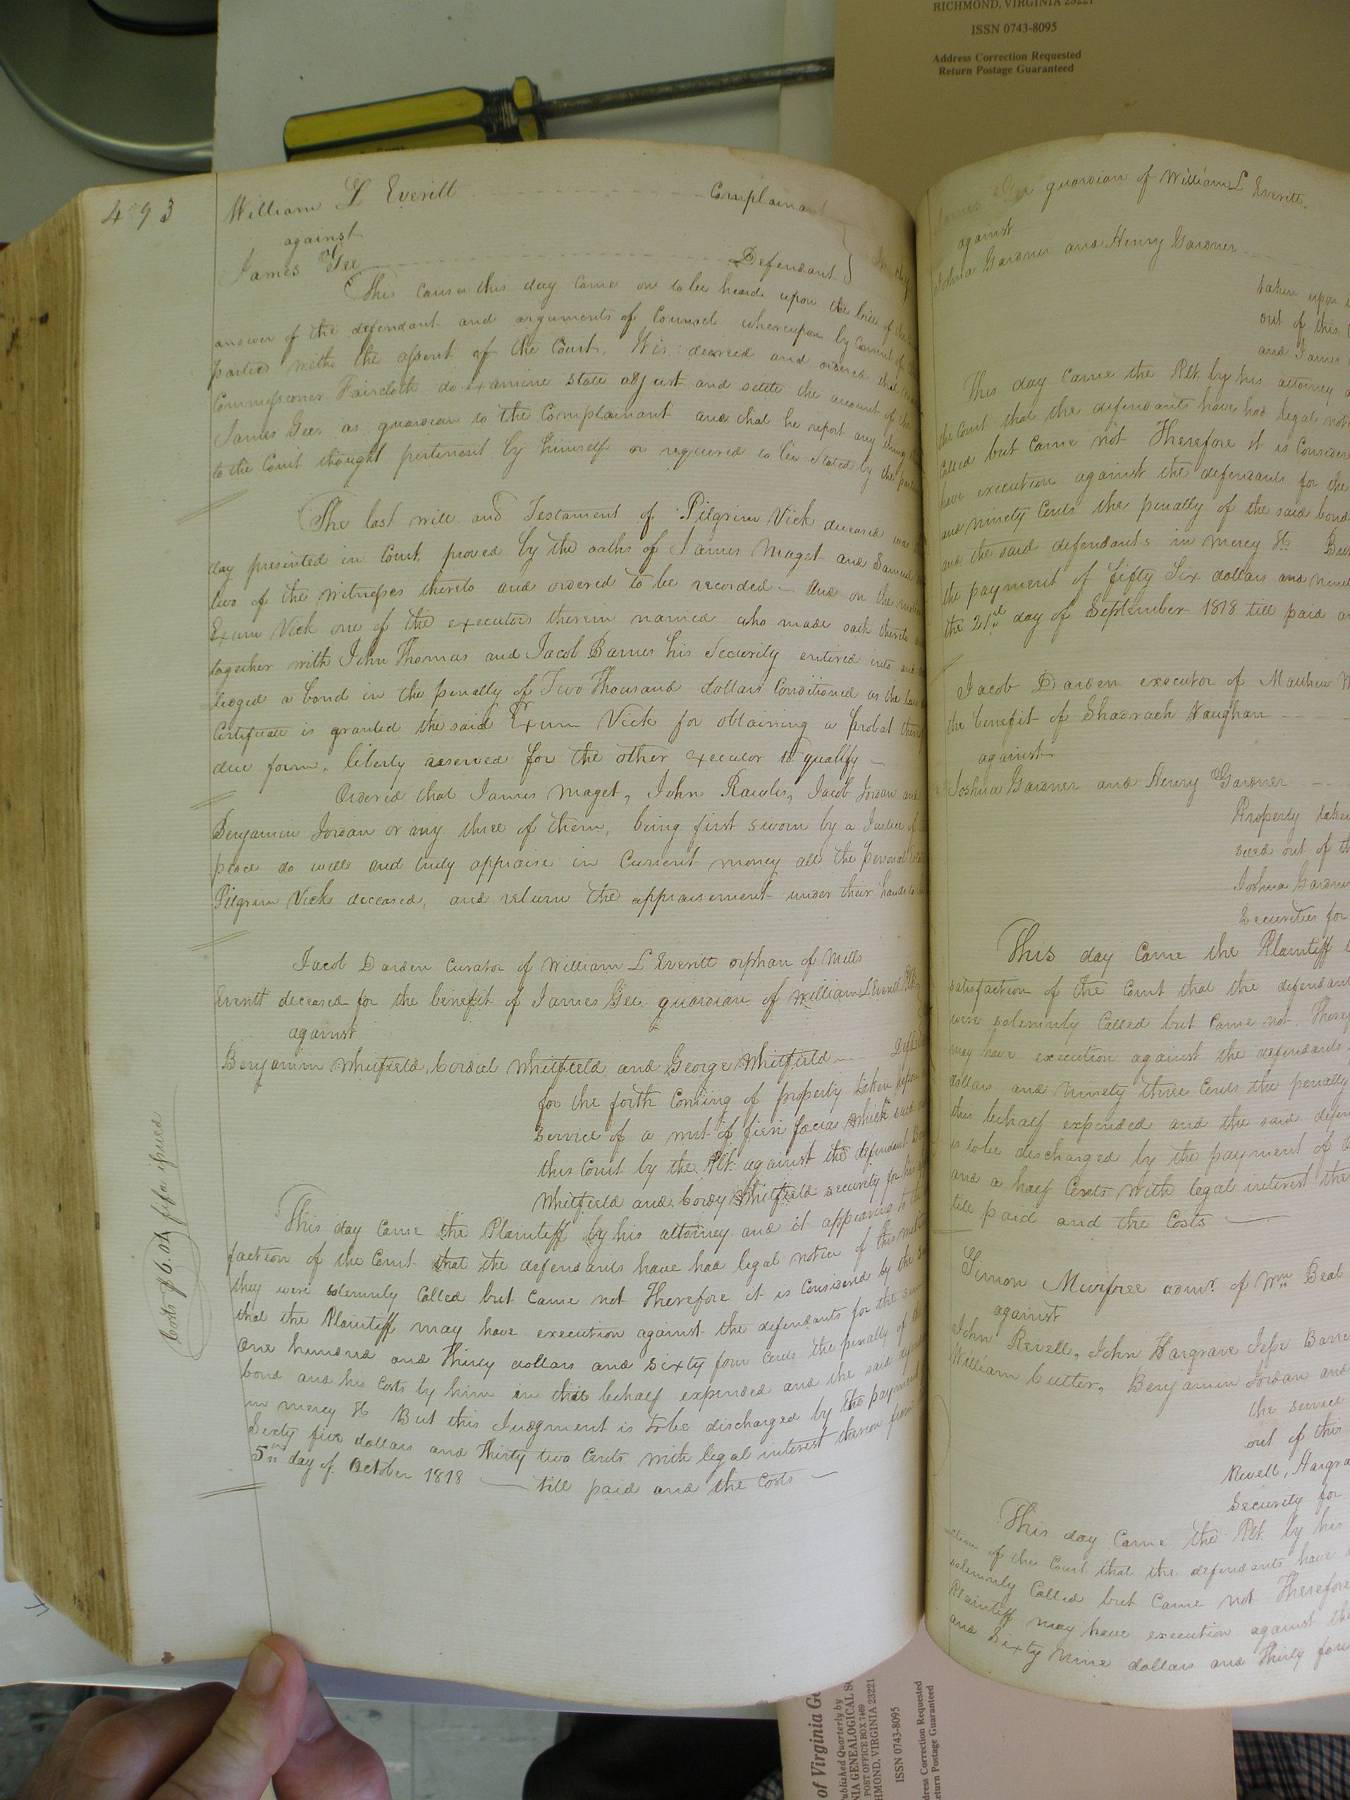 RICHMOND, VIRGINIA 23221
ISSN 0743-8095
Address Correction Requested
Return Postage Guaranteed
493
William L Everitt Complainant
against
James Gee Defendant
This cause this day came on to be heard upon the bill of the
answer of the defendant and arguments of Counsel whereupon by Consent of
parties with the assent of the Court, It is decreed and ordered that
Commissioner Faircloth do examine state adjust and settle the account of the
James Gee as guardian to the Complainant and that he report any thing
to the Court thought pertinent by himself or required to be stated by the
The last will and Testament of Pilgrim Vick deceased was
day presented in Court, proved by the oaths of James Maget and Samuel
two of the witnesses thereto and ordered to be recorded – And on the
Exum Vick one of the executors therein named who made oath thereto
together with John Thomas and Jacob Barnes his Security entered into and
ledged a bond in the penalty of Two Thousand dollars Conditioned as the law
Certificate is granted the said Exum Vick for obtaining a probat
due form, liberty reserved for the other executor to qualify –
Ordered that James Maget, John Rawls, Jacob Jordan and
Benjamin Jordan or any three of them, being first sworn by a Justice of
peace do well and truly appraise in Current money all the personal
Pilgrim Vick deceased, and return the appraisement under their hands
Jacob Darden Curator of William L Everitt orphan of Mills
Everitt deceased for the benefit of James Gee guardian of William L Everitt Plt
against
Benjamin Whitfield, Cordial Whitfield and George Whitfield
for the forth coming of property taken upon
service of a writ of fieri facias which
this Court by the Plt. against the defendant
Whitfield and Cordy Whitfield security for
This day came the Plaintiff by his attorney and it appearing to the
faction of the Court that the defendants have had legal notice of this
they were solemnly Called but came not Therefore it is Considered by the
that the Plaintiff may have execution against the defendants for the sum
One hundred and Thirty dollars and sixty four Cents the penalty of
bond and his costs by him in this behalf expended and the said
in mercy &c But this Judgment is to be discharged by the payment
Sixty five dollars and Thirty two Cents with legal interest thereon from
5th day of October 1818 — till paid and the Costs –
Costs $6.
fifa issued
Gee guardian of William L Everitt.
against
Joshua Gardner and Henry Gardner
taken upon
out of this
and James
This day came the Plt. by his attorney
the Court that the defendants have had legal
Called but came not Therefore it is
have execution against the defendants for the
and ninety Cents the penalty of the said bond
and the said defendants in mercy &c But
the payment of fifty Six dollars and
the 21st day of September 1818 till paid
Jacob Darden executor of Matthew
the benefit of Shadrach Vaughan
against
Joshua Gardner and Henry Gardner
Property taken
sued out of
Joshua Gardner
Securities for
This day came the Plaintiff
satisfaction of the Court that the
were solemnly Called but came not
may have execution against the defendants
dollars and ninety three Cents the penalty
this behalf expended and the said
is to be discharged by the payment of
and a half Cents with legal interest
till paid and the Costs —
Simon Murfree admr. of Wm Beal
against
John Revell, John Hargrave Jesse
William Cutler, Benjamin Jordan and
the service
out of this
Revell,
Security for
This day came the Plt. by his
of the Court that the defendants have
solemnly Called but came not Therefore
Plaintiff may have execution against the
and Sixty Nine dollars and Thirty four
of Virginia
Published Quarterly by
GENEALOGICAL
POST OFFICE BOX 7469
RICHMOND, VIRGINIA 23221
ISSN 0743-8095
Address Correction Requested
Return Postage Guaranteed